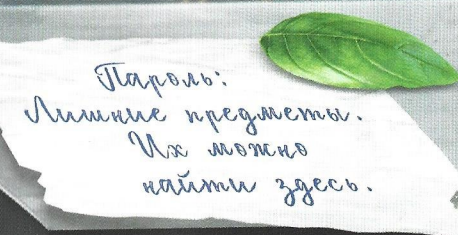 Пароль:
Лишние предметы.
Их можно
найти здесь.